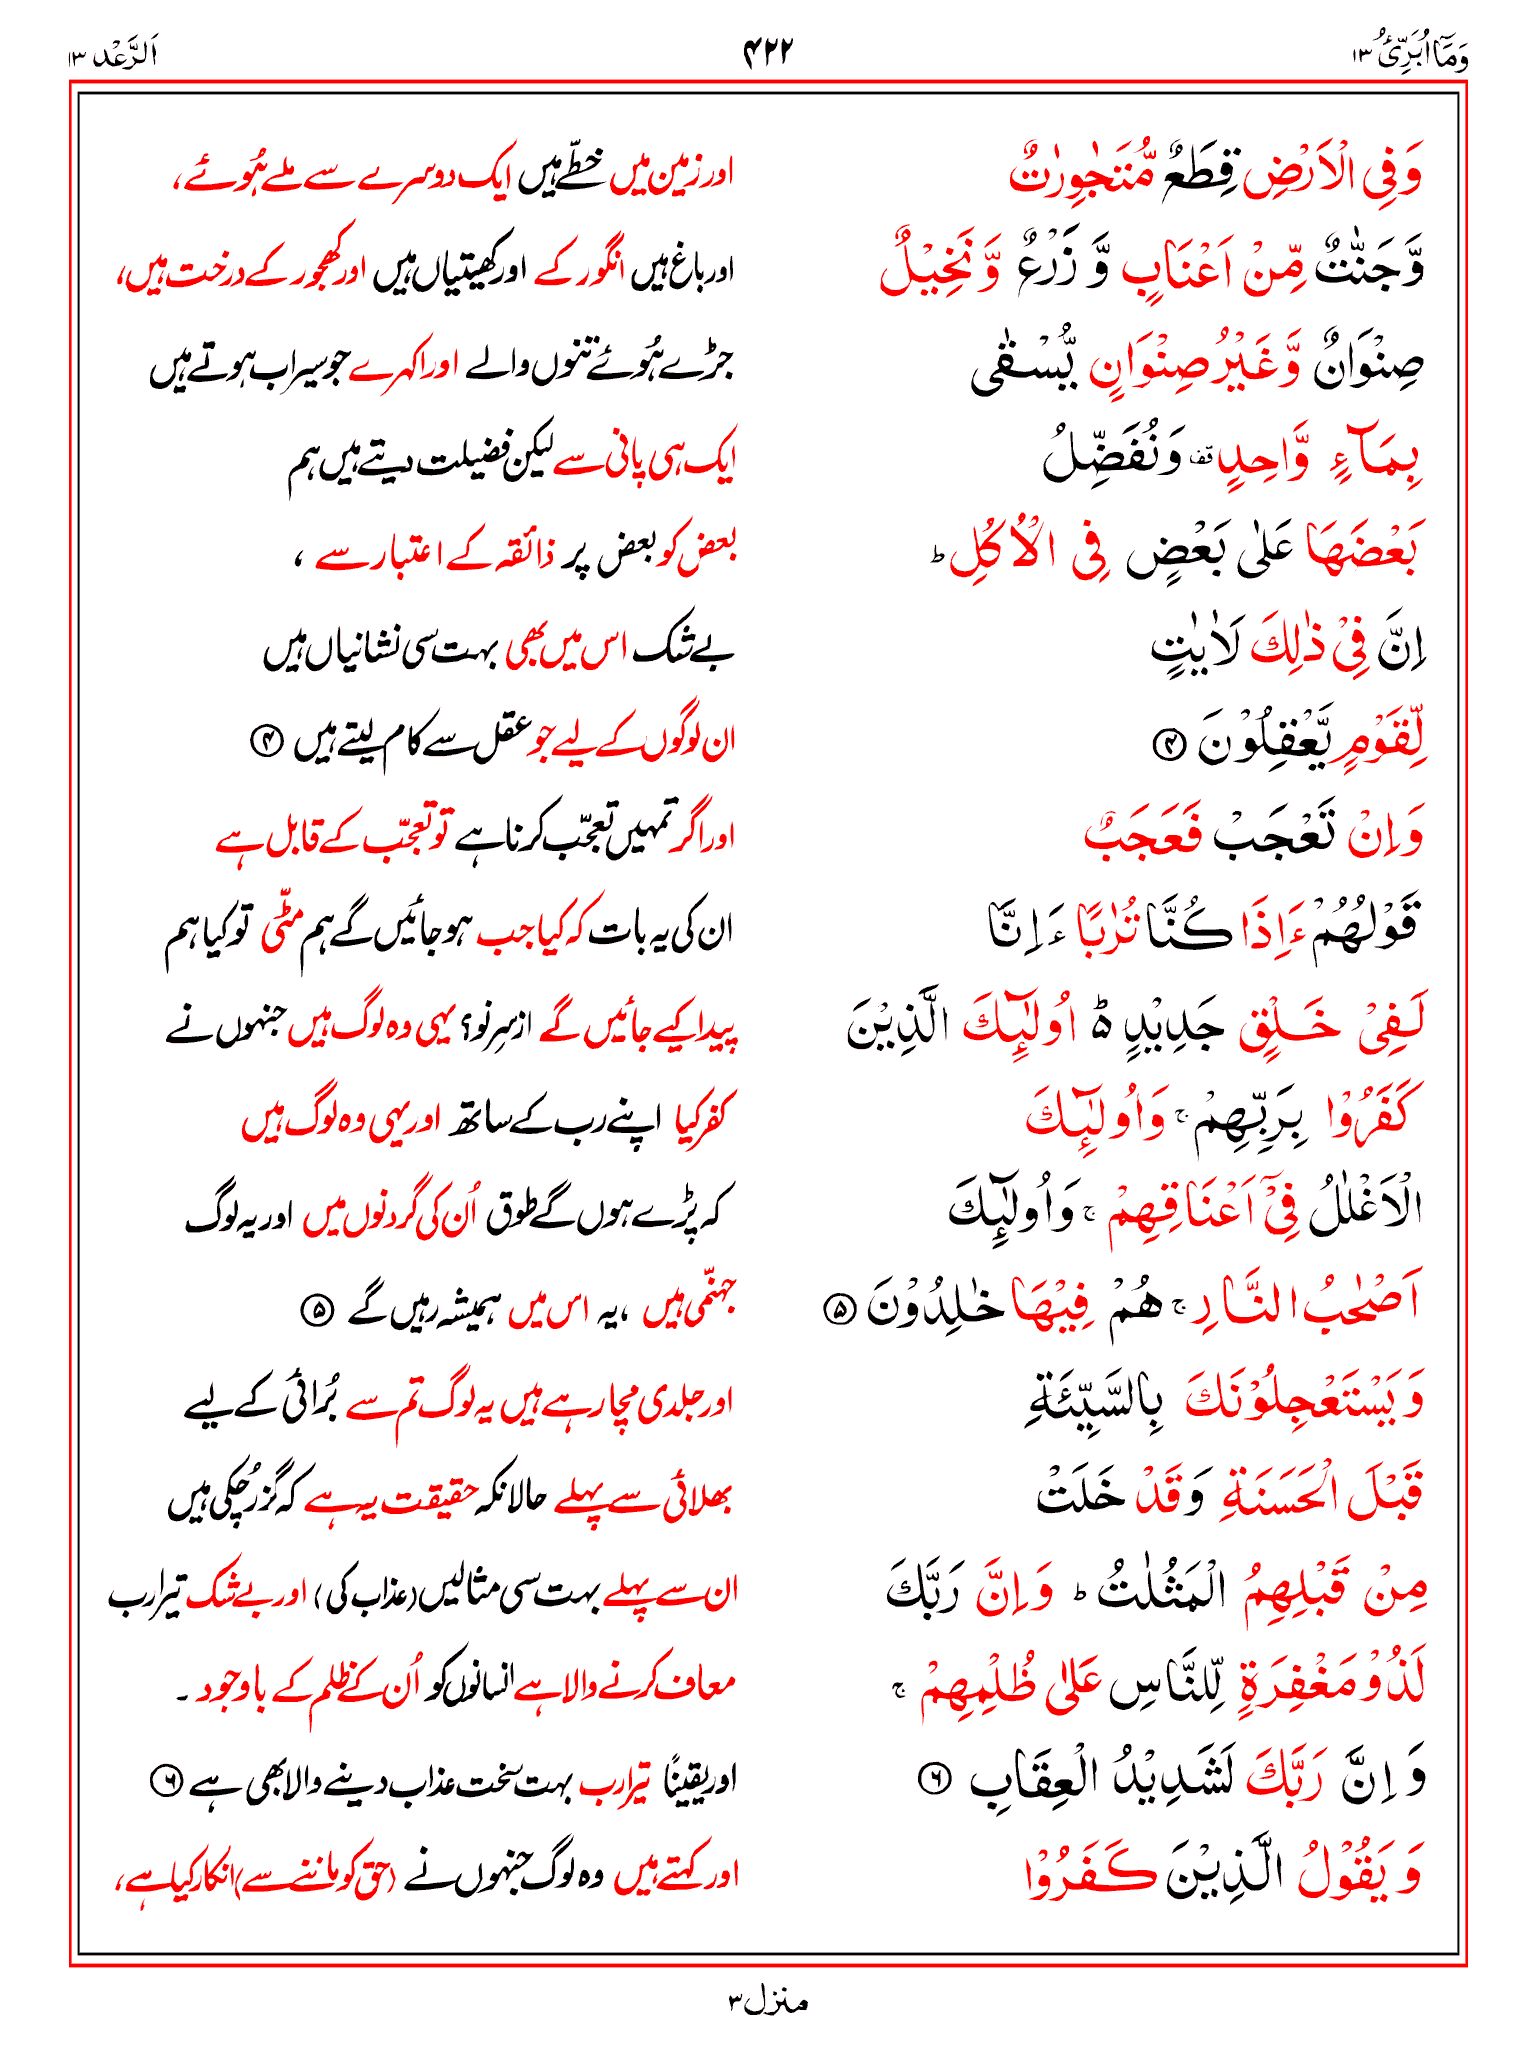 وَمَآ اُبَرِّئُ ۱۳ ۴۲۲ اَلرَّعْد ۱۳
وَفِي الْاَرْضِ قِطَعٌ مُّتَجٰوِرٰتٌ اور زمین میں خطّے ہیں ایک دوسرے سے ملے ہُوئے،
وَّجَنّٰتٌ مِّنْ اَعْنَابٍ وَّ زَرْعٌ وَّ نَخِيْلٌ اور باغ ہیں انگور کے اور کھیتیاں ہیں اور کھجور کے درخت ہیں،
صِنْوَانٌ وَّغَيْرُ صِنْوَانٍ يُّسْقٰى جڑے ہُوئے تنوں والے اور اکہرے جو سیراب ہوتے ہیں
بِمَآءٍ وَّاحِدٍ ۟ وَنُفَضِّلُ ایک ہی پانی سے لیکن فضیلت دیتے ہیں ہم
بَعْضَهَا عَلٰى بَعْضٍ فِى الْاُكُلِ ؕ بعض کو بعض پر ذائقہ کے اعتبار سے ،
اِنَّ فِيْ ذٰلِكَ لَاٰيٰتٍ بے شک اس میں بھی بہت سی نشانیاں ہیں
لِّقَوْمٍ يَّعْقِلُوْنَ ۴ ان لوگوں کے لیے جو عقل سے کام لیتے ہیں ۴
وَاِنْ تَعْجَبْ فَعَجَبٌ اور اگر تمہیں تعجّب کرنا ہے تو تعجّب کے قابل ہے
قَوْلُهُمْ ءَاِذَا كُنَّا تُرٰبًا ءَاِنَّا ان کی یہ بات کہ کیا جب ہو جائیں گے ہم مٹّی تو کیا ہم
لَفِيْ خَلْقٍ جَدِيْدٍ ۵ؕ اُولٰٓئِكَ الَّذِيْنَ پیدا کیے جائیں گے ازسرِنو؟ یہی وہ لوگ ہیں جنہوں نے
كَفَرُوْا بِرَبِّهِمْ ۚ وَاُولٰٓئِكَ کفر کیا اپنے رب کے ساتھ اور یہی وہ لوگ ہیں
الْاَغْلٰلُ فِيْٓ اَعْنَاقِهِمْ ۚ وَاُولٰٓئِكَ کہ پڑے ہوں گے طوق اُن کی گردنوں میں اور یہ لوگ
اَصْحٰبُ النَّارِ ۚ هُمْ فِيْهَا خٰلِدُوْنَ ۵ جہنّمی ہیں ،یہ اس میں ہمیشہ رہیں گے ۵
وَيَسْتَعْجِلُوْنَكَ بِالسَّيِّئَةِ اور جلدی مچا رہے ہیں یہ لوگ تم سے بُرائی کے لیے
قَبْلَ الْحَسَنَةِ وَقَدْ خَلَتْ بھلائی سے پہلے حالانکہ حقیقت یہ ہے کہ گزر چُکی ہیں
مِنْ قَبْلِهِمُ الْمَثُلٰتُ ؕ وَاِنَّ رَبَّكَ ان سے پہلے بہت سی مثالیں (عذاب کی) اور بے شک تیرا رب
لَذُوْ مَغْفِرَةٍ لِّلنَّاسِ عَلٰى ظُلْمِهِمْ ۚ معاف کرنے والا ہے انسانوں کو اُن کے ظلم کے باوجود ۔
وَاِنَّ رَبَّكَ لَشَدِيْدُ الْعِقَابِ ۶ اور یقیناً تیرا رب بہت سخت عذاب دینے والا بھی ہے ۶
وَيَقُوْلُ الَّذِيْنَ كَفَرُوْا اور کہتے ہیں وہ لوگ جنہوں نے (حق کو ماننے سے) انکار کیا ہے،
منزل ۳